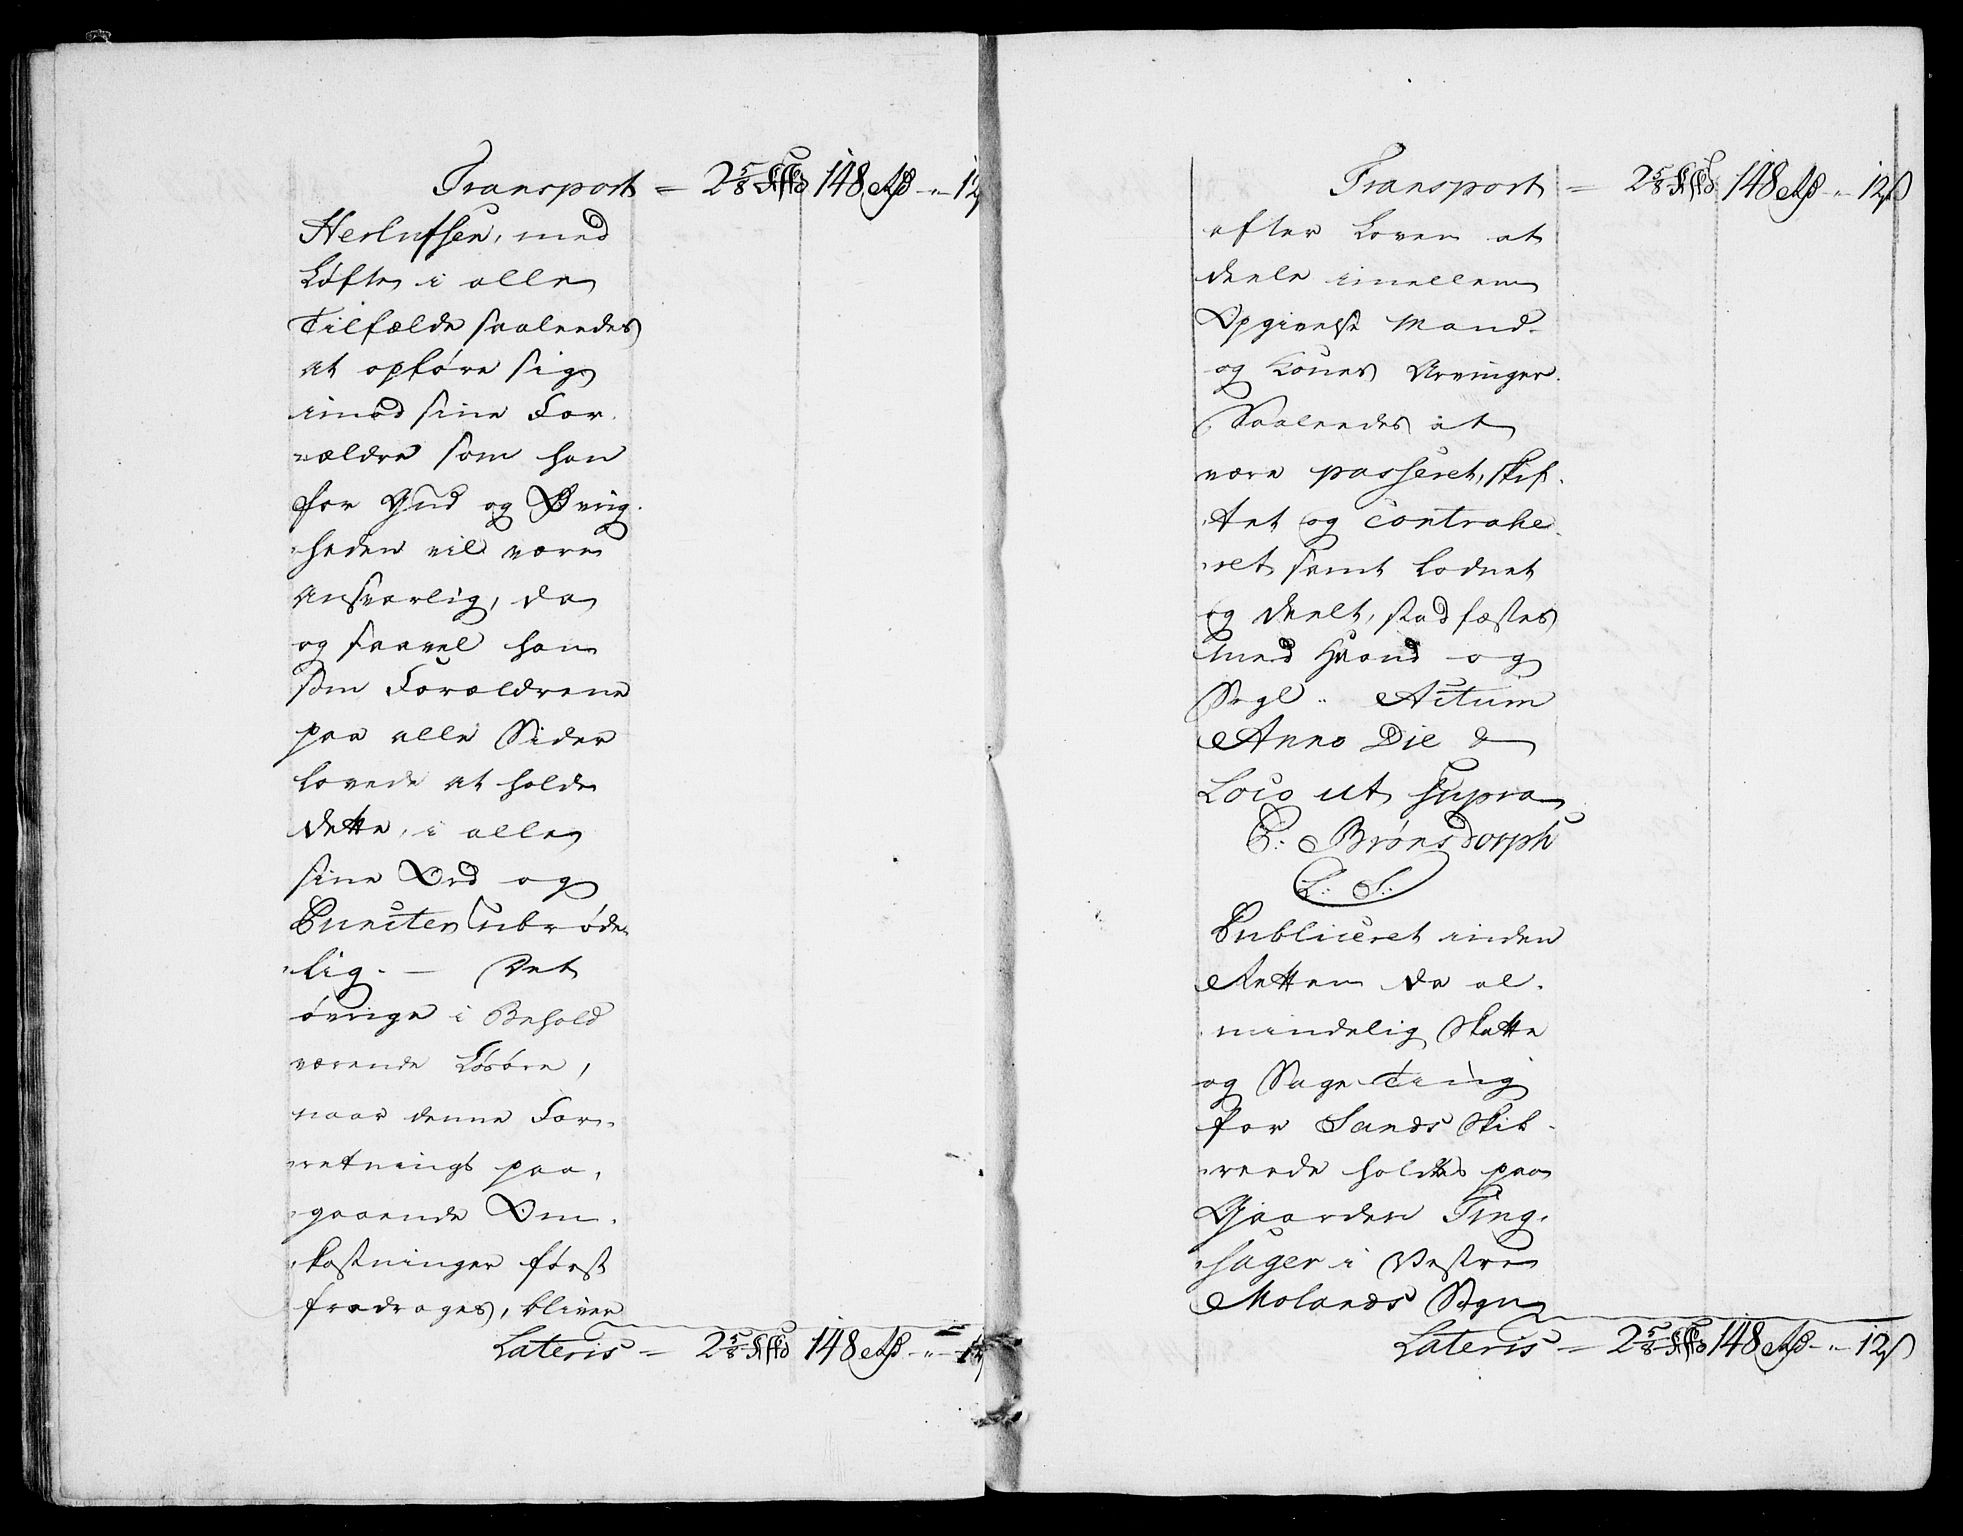 Transport = 2 5/8 Skfd 148 Rd - " - 12
Herlufsen, med
Løfte i alle
Tilfælde saaleedes
at opføre sig
imod sine For-
ældre som han
for Gud og Øvrig-
heden vil være
Ansvarlig, da
og saavel han
som Forældrene
paa alle Sider
lovede at holde
dette, i alle
sine Ord og
Puncter ubrøde-
lig. — Det
øvrige i Behold
værende Løsøre,
naar denne For-
retnings paa-
gaaende Om-
kostninger først
fradrages, bliver
Lateris = 2 5/8 Skfd 148 Rd - " - 12
Transport = 2 5/8 Skfd 148 Rd - " - 12 s
efter Loven at
deele imellem
Opgivelse Mand-
og Kones Arvinger.
Saaleedes at
være passeret, skif-
tet og contrahe-
ret samt Lodnet
og deelt, stadfæstes
med Haand og
Segl. Actum
Anno Die &
Loco ut supra
P: Brønsdorph
L: S:
Publiceret inden
Retten da al-
mindelig Skatte
og Sage Ting
for Sands Skib-
reede holdtes paa
Gaarden Ting-
sager i Vestre
Molands Sogn
Lateris = 2 5/8 Skfd 148 Rd - " - 12 s